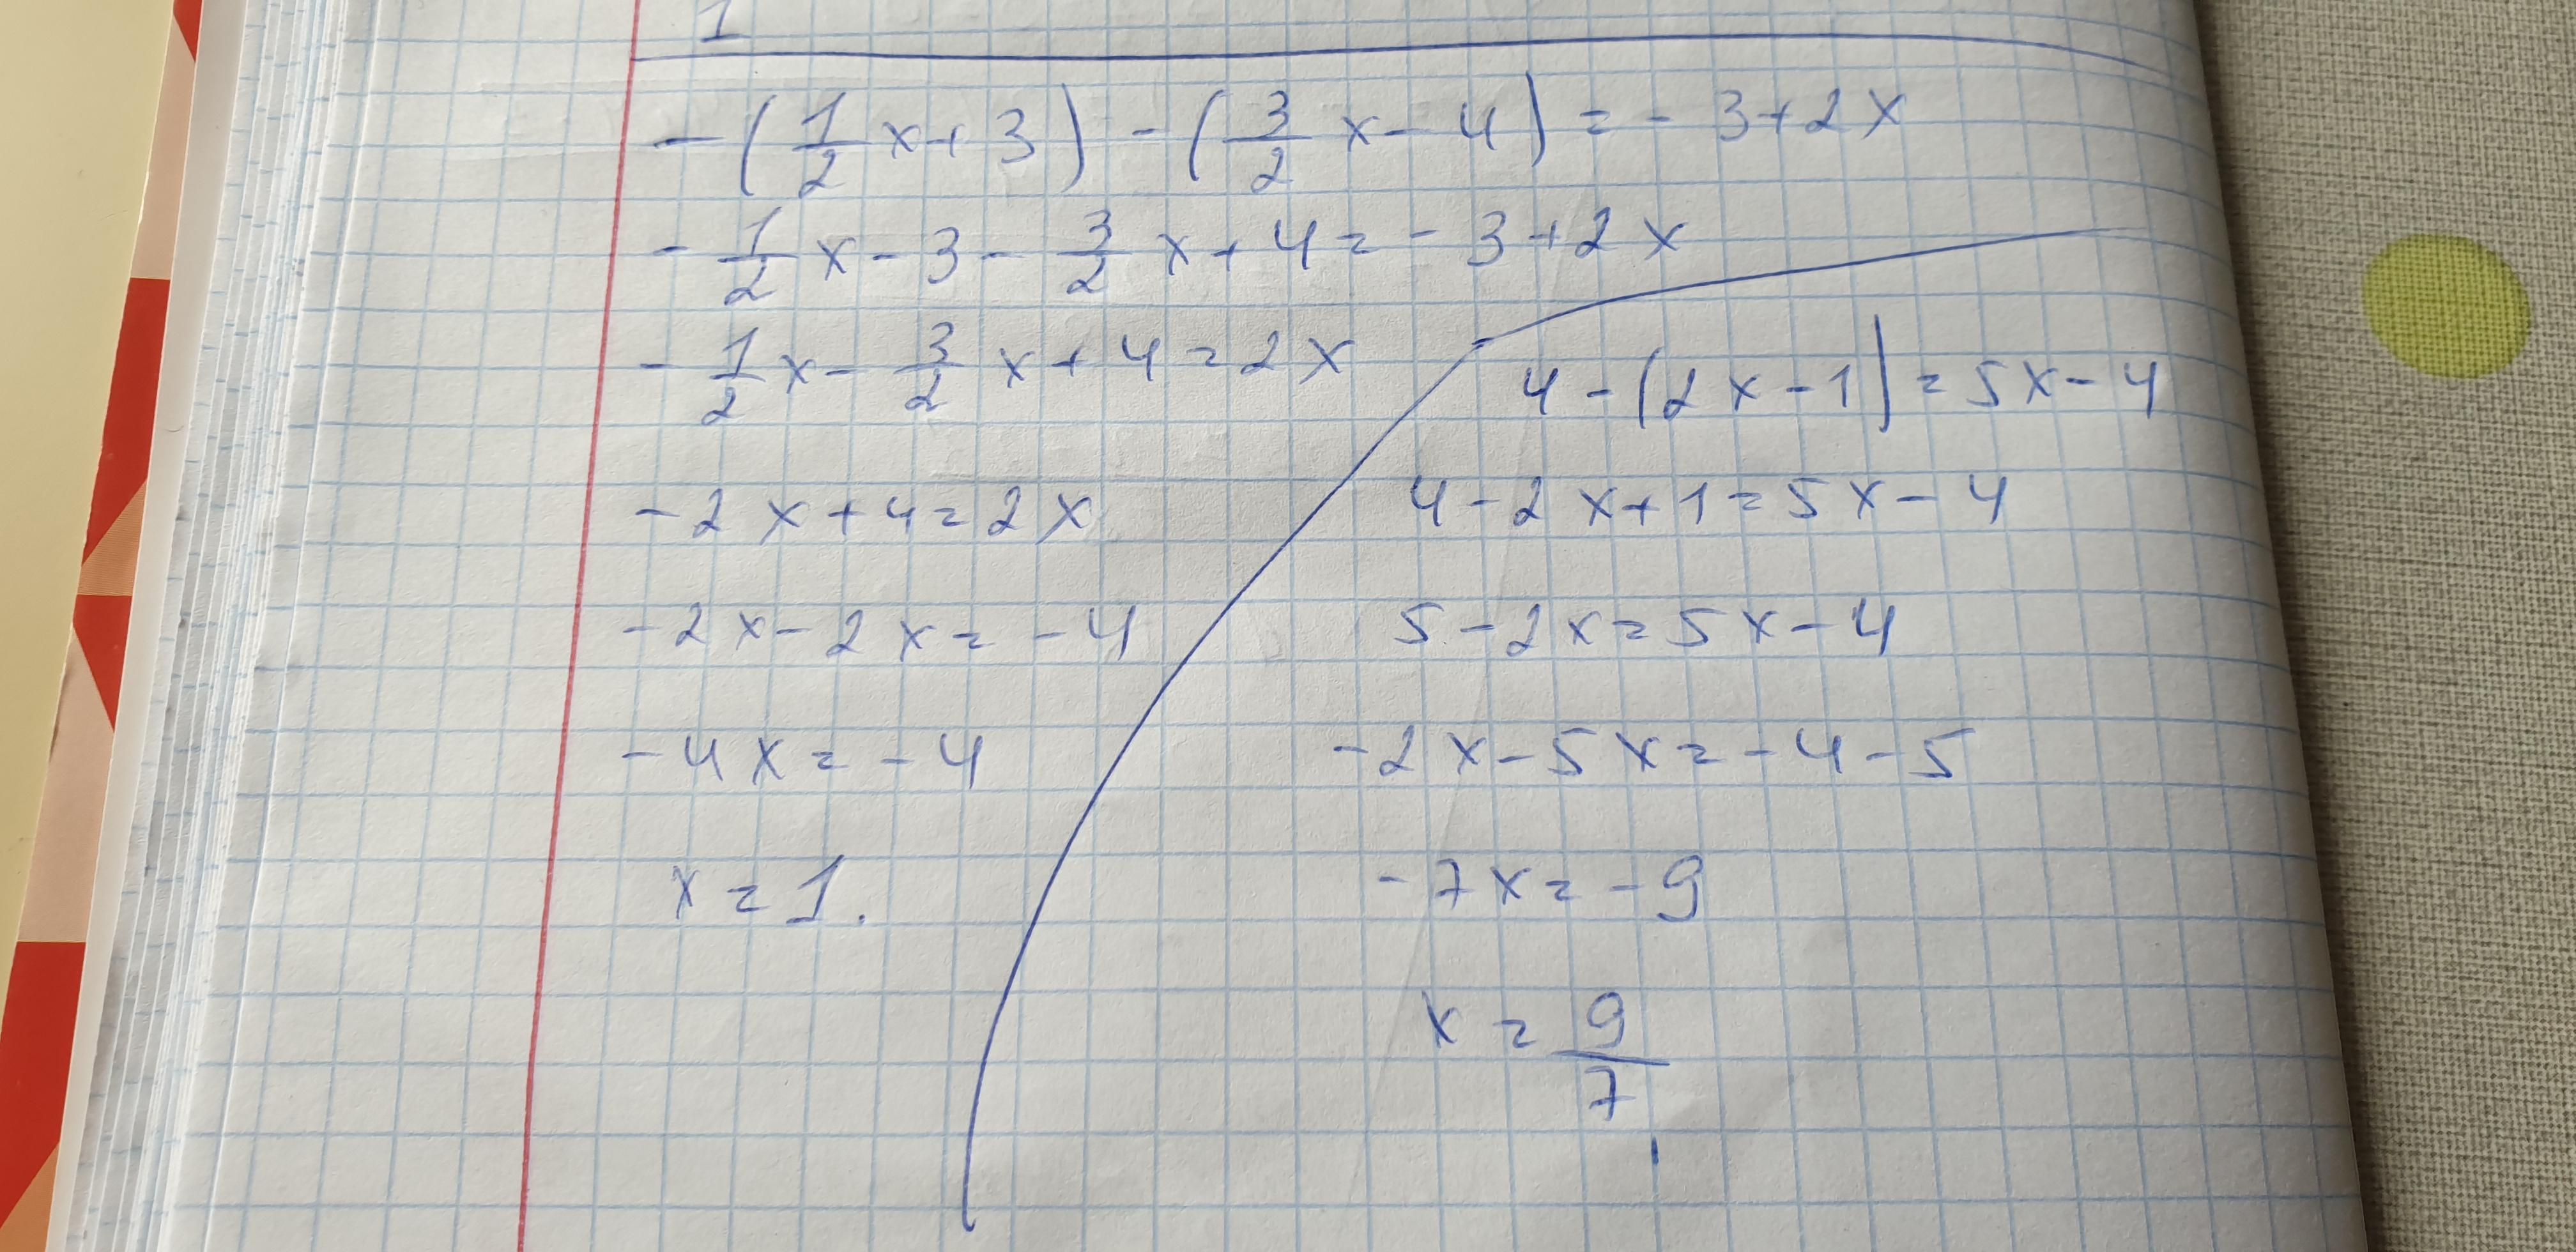 1
-(1/2 x+3)-(3/2 x-4)=-3+2x
-1/2 x-3-3/2 x+4=-3+2x
-1/2 x-3/2 x+4=2x
-2x+4=2x
-2x-2x=-4
-4x=-4
x=1.
4-(2x-1)=5x-4
4-2x+1=5x-4
5-2x=5x-4
-2x-5x=-4-5
-7x=-9
x=9/7